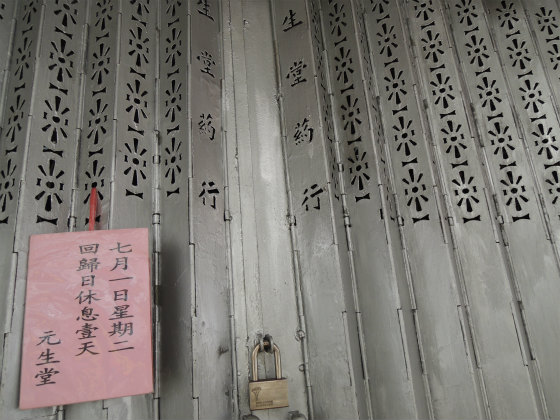 生堂药行
生堂药行
七月一日星期二
回歸日休息壹天
元生堂